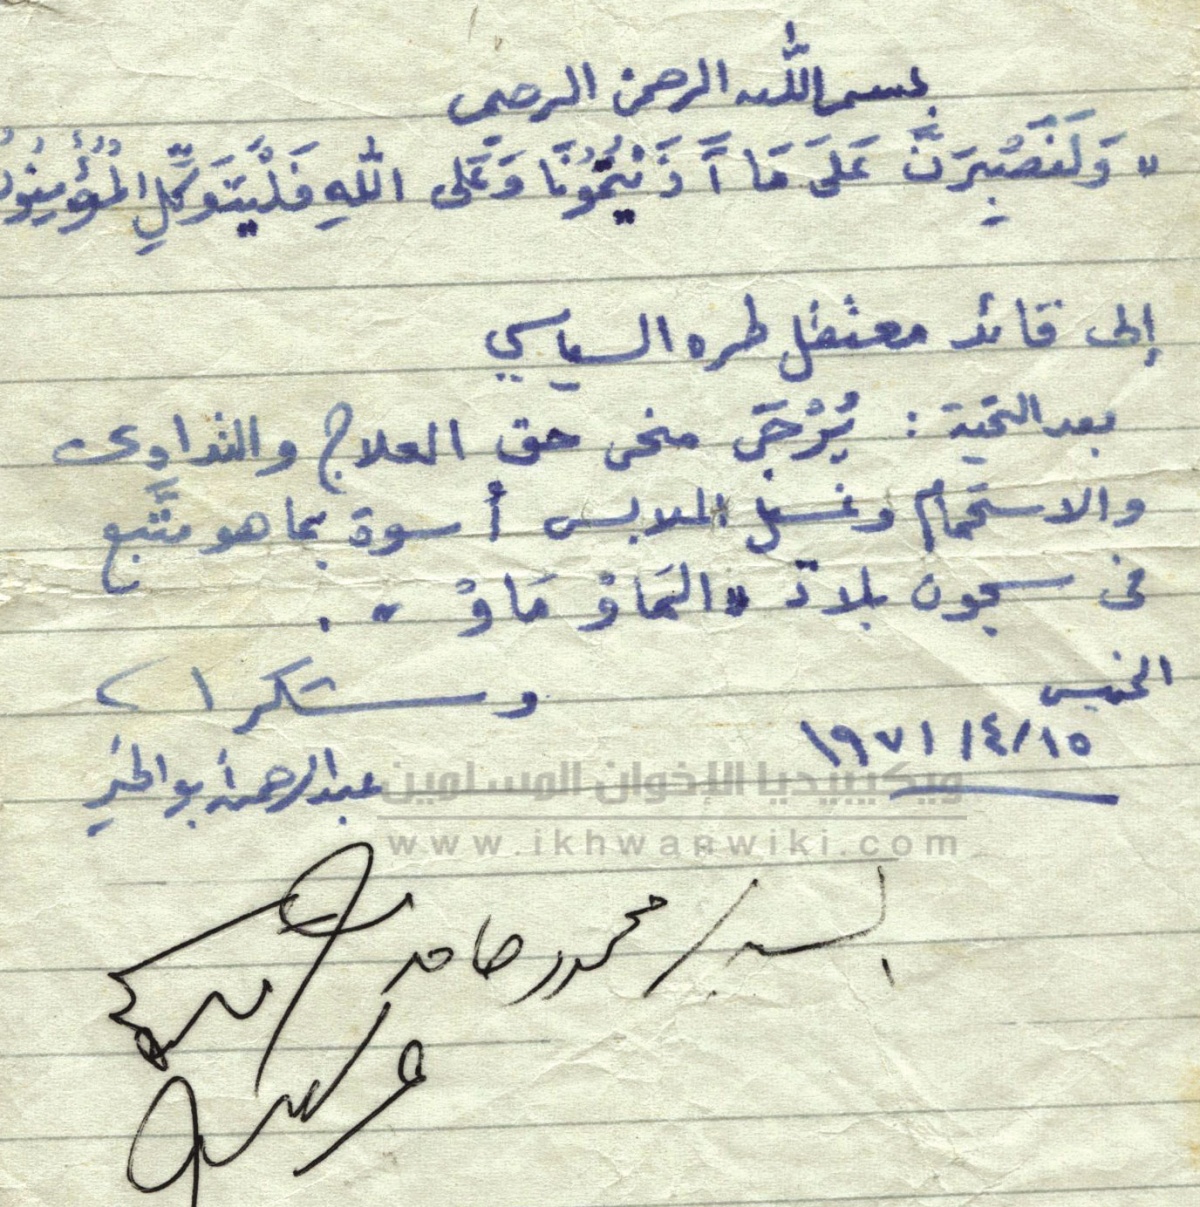 بسم الله الرحمن الرحيم
" وَلَنَصْبِرَنَّ عَلَىَ مَا آذَيْتُمُونَا وَعَلى اللهِ فَلْيَتَوَكَّلِ الْمُؤْمِنُونَ
إلى قائد معتقل طره السياسي
بعد التحية : يُرْجَى منحى حق العلاج والتداوى
والاستحمام وغسل الملابس أسوة بما هو متَّبع
فى سجون بلاد " المَاوْ مَاوْ " .
وشكرا
الخميس
١٥/٤/١٩٧١
عبد الرحمن أبو الخير
ويكيبيديا الإخوان المسلمين
www.ikhwanwiki.com
السيد / محمود حامد